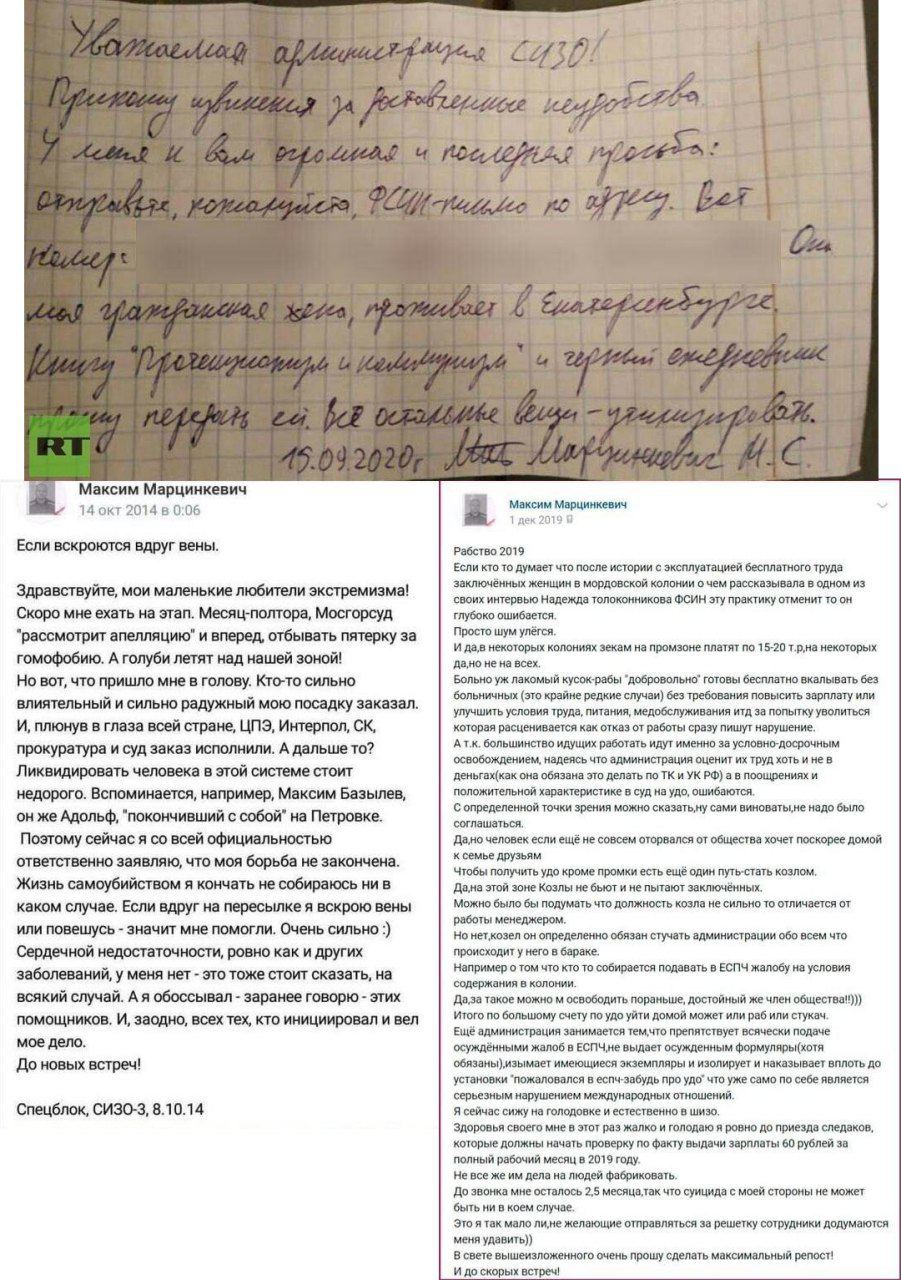 Уважаемая администрация СИЗО!
Приношу извинения за доставленные неудобства.
У меня к вам огромная и последняя просьба:
отправьте, пожалуйста, ФСИН-письмо по адресу. Вот
номер: Она
моя гражданская жена, проживает в Екатеринбурге.
Книгу "Протекционизм и коммунизм" и черный ежедневник
прошу передать ей. Все остальные вещи - утилизировать.
15.09.2020г Марцинкевич М.С.
RT
Максим Марцинкевич
14 окт 2014 в 0:06
Если вскроются вдруг вены.
Здравствуйте, мои маленькие любители экстремизма!
Скоро мне ехать на этап. Месяц-полтора, Мосгорсуд
"рассмотрит апелляцию" и вперед, отбывать пятерку за
гомофобию. А голуби летят над нашей зоной!
Но вот, что пришло мне в голову. Кто-то сильно
влиятельный и сильно радужный мою посадку заказал.
И, плюнув в глаза всей стране, ЦПЭ, Интерпол, СК,
прокуратура и суд заказ исполнили. А дальше то?
Ликвидировать человека в этой системе стоит
недорого. Вспоминается, например, Максим Базылев,
он же Адольф, "покончивший с собой" на Петровке.
Поэтому сейчас я со всей официальностью
ответственно заявляю, что моя борьба не закончена.
Жизнь самоубийством я кончать не собираюсь ни в
каком случае. Если вдруг на пересылке я вскрою вены
или повешусь - значит мне помогли. Очень сильно :)
Сердечной недостаточности, ровно как и других
заболеваний, у меня нет - это тоже стоит сказать, на
всякий случай. А я обоссывал - заранее говорю - этих
помощников. И, заодно, всех тех, кто инициировал и вел
мое дело.
До новых встреч!
Спецблок, СИЗО-3, 8.10.14
Максим Марцинкевич
1 дек 2019
Рабство 2019
Если кто то думает что после истории с эксплуатацией бесплатного труда
заключённых женщин в мордовской колонии о чем рассказывала в одном из
своих интервью Надежда толоконникова ФСИН эту практику отменит то он
глубоко ошибается.
Просто шум улёгся.
И да,в некоторых колониях зекам на промзоне платят по 15-20 т.р,на некоторых
да,но не на всех.
Больно уж лакомый кусок-рабы "добровольно" готовы бесплатно вкалывать без
больничных (это крайне редкие случаи) без требования повысить зарплату или
улучшить условия труда, питания, медобслуживания итд за попытку уволиться
которая расценивается как отказ от работы сразу пишут нарушение.
А т.к. большинство идущих работать идут именно за условно-досрочным
освобождением, надеясь что администрация оценит их труд хоть и не в
деньгах(как она обязана это делать по ТК и УК РФ) а в поощрениях и
положительной характеристике в суд на удо, ошибаются.
С определенной точки зрения можно сказать,ну сами виноваты,не надо было
соглашаться.
Да,но человек если ещё не совсем оторвался от общества хочет поскорее домой
к семье друзьям
Чтобы получить удо кроме промки есть ещё один путь-стать козлом.
Да,на этой зоне Козлы не бьют и не пытают заключённых.
Можно было бы подумать что должность козла не сильно то отличается от
работы менеджером.
Но нет,козел он определенно обязан стучать администрации обо всем что
происходит у него в бараке.
Например о том что кто то собирается подавать в ЕСПЧ жалобу на условия
содержания в колонии.
Да,за такое можно м освободить пораньше, достойный же член общества!!)))
Итого по большому счету по удо уйти домой может или раб или стукач.
Ещё администрация занимается тем,что препятствует всячески подаче
осуждёнными жалоб в ЕСПЧ,не выдает осужденным формуляры(хотя
обязаны),изымает имеющиеся экземпляры и изолирует и наказывает вплоть до
установки "пожаловался в еспч-забудь про удо" что уже само по себе является
серьезным нарушением международных отношений.
Я сейчас сижу на голодовке и естественно в шизо.
Здоровья своего мне в этот раз жалко и голодаю я ровно до приезда следаков,
которые должны начать проверку по факту выдачи зарплаты 60 рублей за
полный рабочий месяц в 2019 году.
Не все же им дела на людей фабриковать.
До звонка мне осталось 2,5 месяца,так что суицида с моей стороны не может
быть ни в коем случае.
Это я так мало ли,не желающие отправляться за решетку сотрудники додумаются
меня удавить))
В свете вышеизложенного очень прошу сделать максимальный репост!
И до скорых встреч!